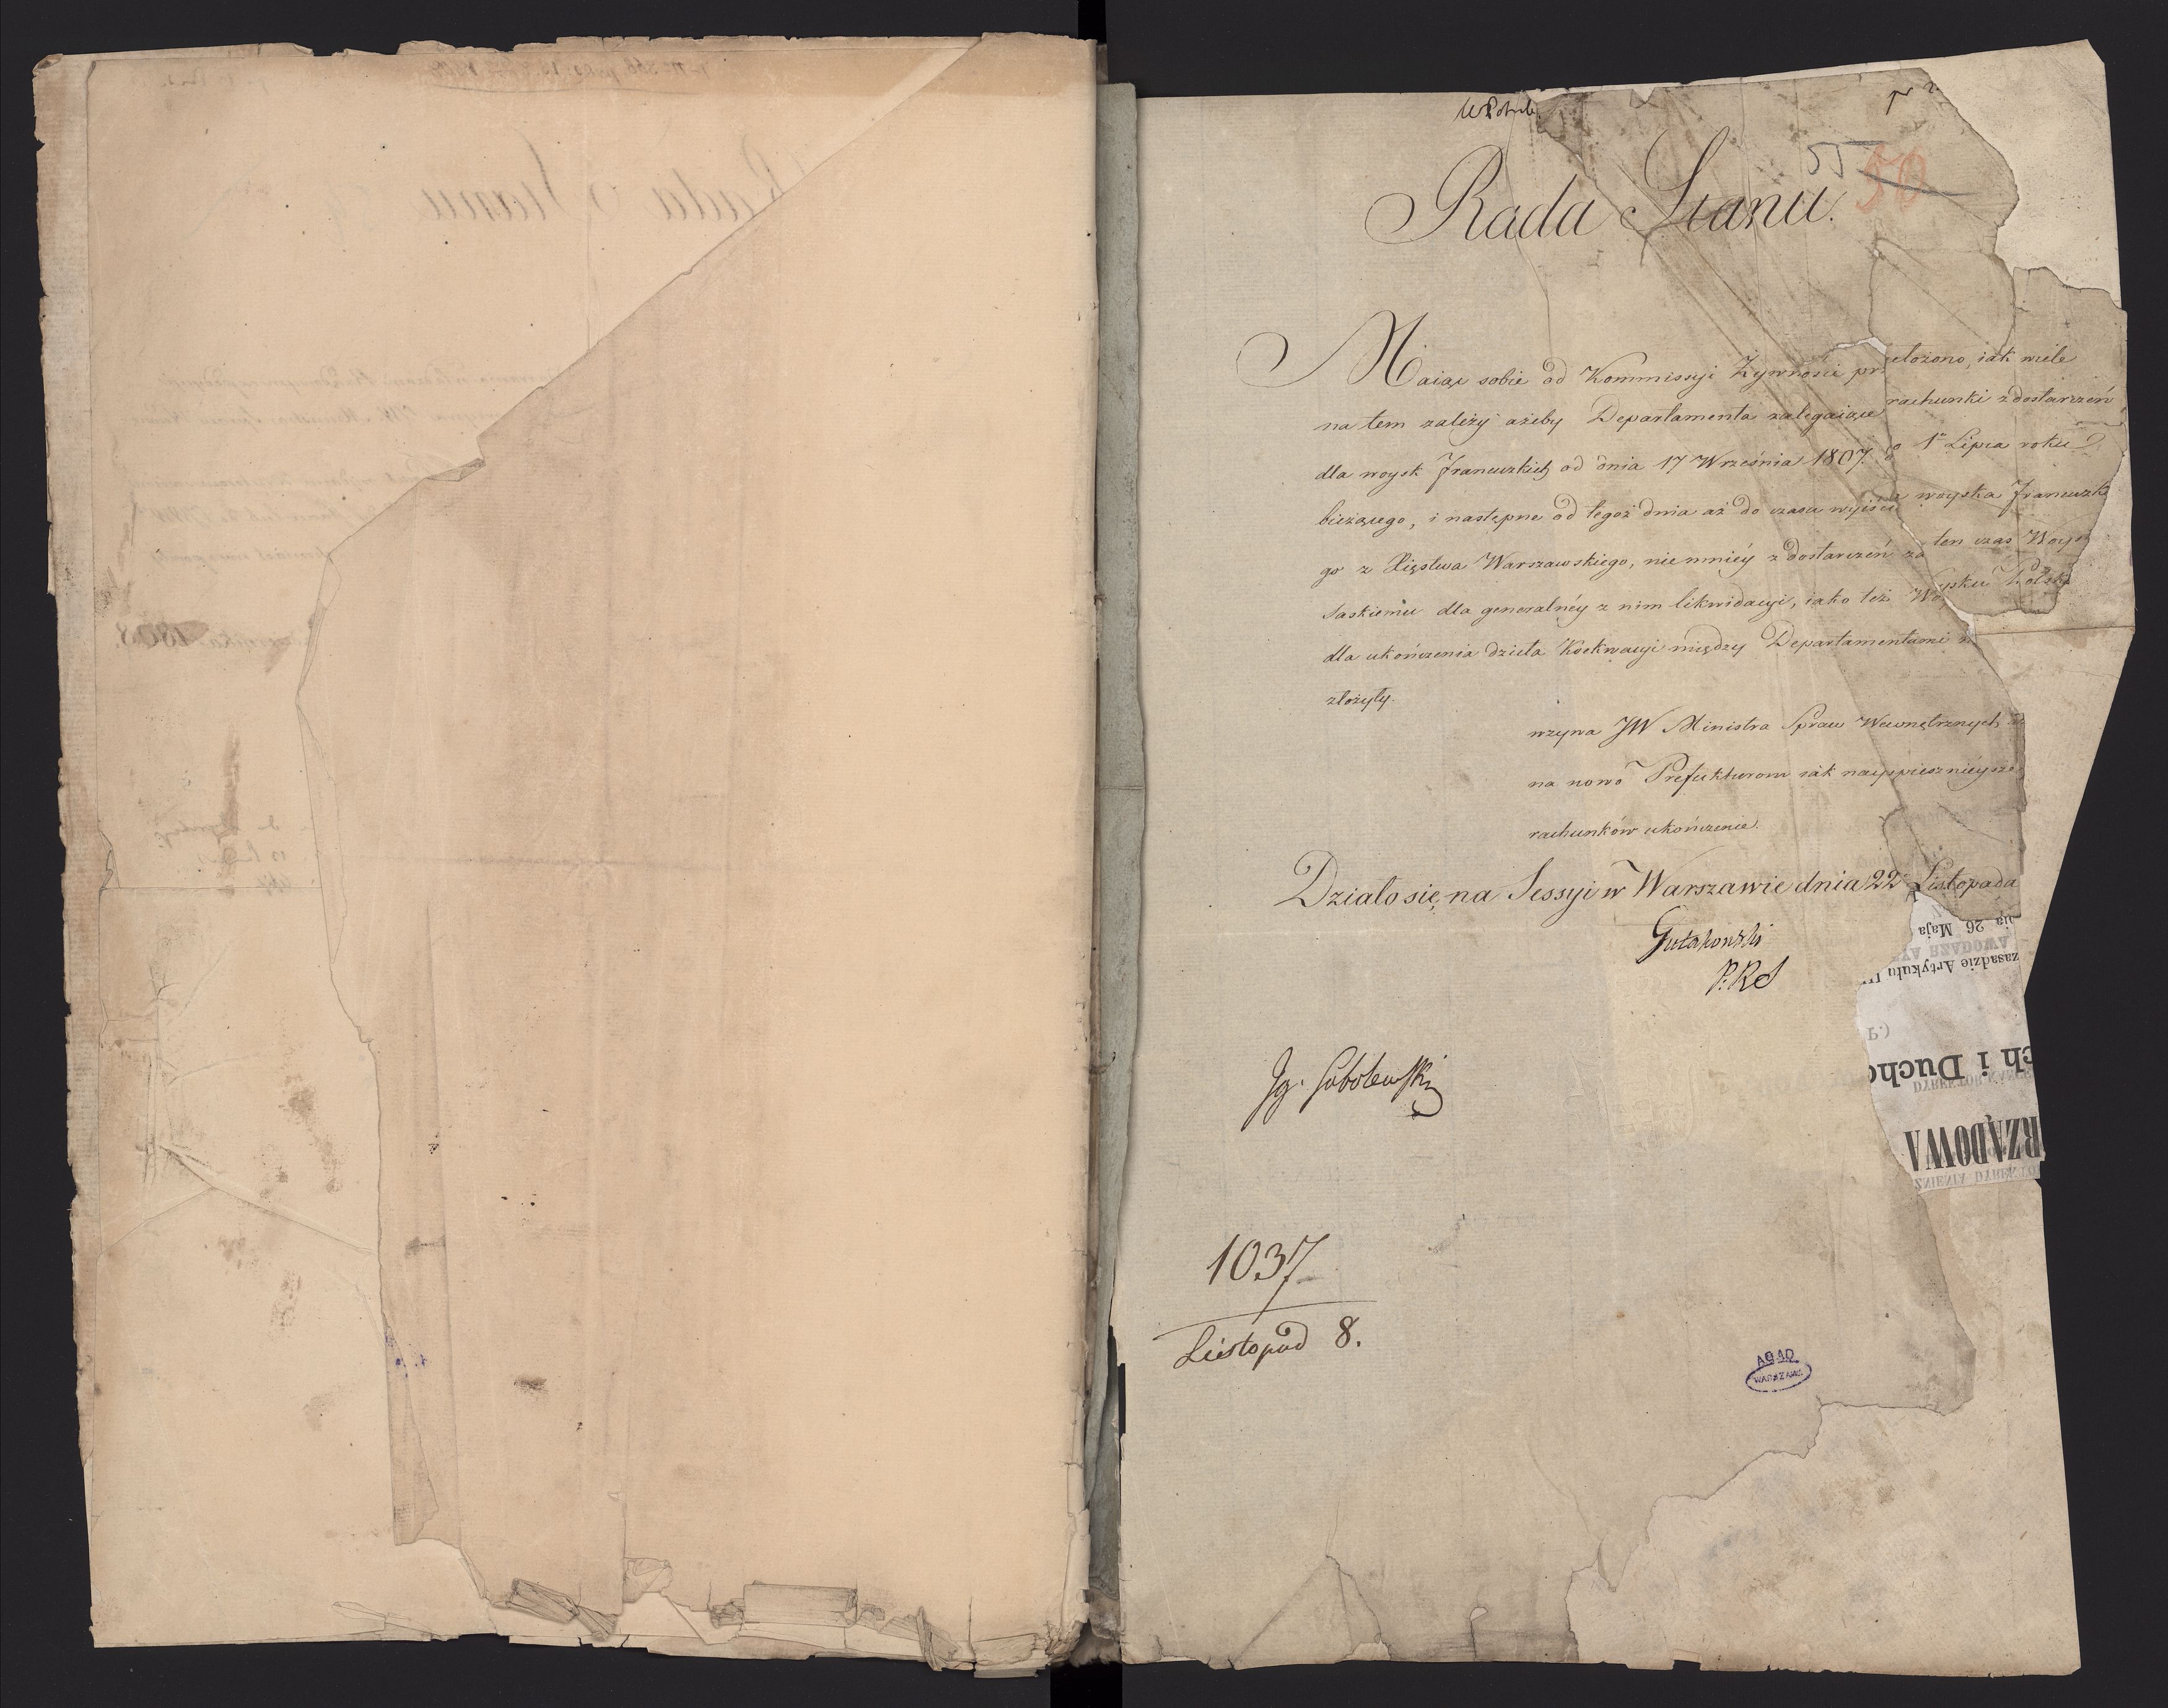 55 50
Rada Stanu.
Maiąc sobie od Kommissyi Żywności przełożono, iak wiele
na tem zależy ażeby Departamenta zalegaiące rachunki z dostarczeń
dla woysk Francuzkich od dnia 17 Września 1807. do 1º Lipca roku
bieżącego, i następne od tegoż dnia aż do czasu wyiścia woyska Francuzkie
go z Xięstwa Warszawskiego, niemniéy z dostarczeń za ten czas Woysku
Saskiemu dla generalnéy z nim likwidacyi, iako też Woysku Polsk
dla ukończenia dzieła Koekwacyi między Departamentami
złożyły.
wzywa JW Ministra Spraw Wewnętrznych
na nowo Prefekturom iák nayspiesznieysze
rachunków ukończenie.
Działo się na Sessyi w Warszawie dnia 22 Listopada
Gutakowski
P.RS
Ig. Sobolewski
1037
Listopad 8.
AGAD
WARSZAWA
ia 26 Maja
zasadzie Artykułu
ch i Ducho
RZĄDOWA